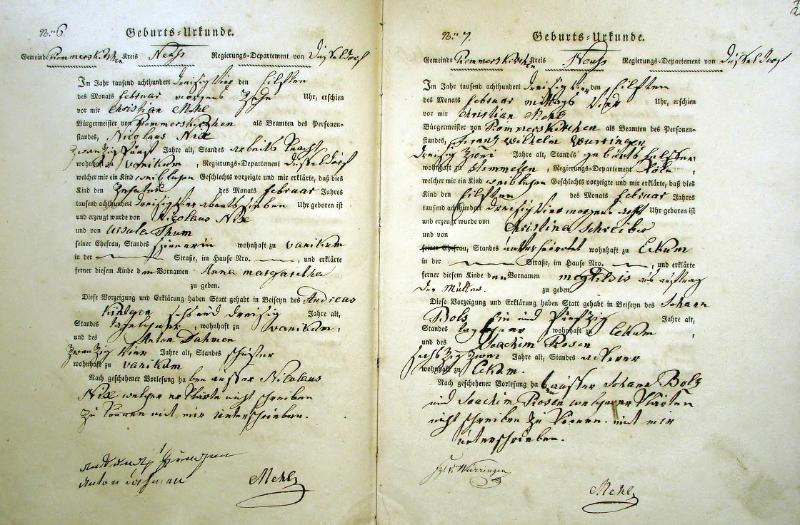 No 6
Geburts-Urkunde.
Gemeinde Rommerskirchen Kreis Neuß Regierungs-Departement von Düsseldorf
Im Jahr tausend achthundert dreisig vier den eilften
des Monats februar morgens Zehn Uhr, erschien
vor mir Christian Mehl
Bürgermeister von Rommerskirchen als Beamten des Personen-
standes, Nicolaus Nix
zwanzig fünf Jahre alt, Standes arbeits Knecht
wohnhaft zu vanikum, Regierungs-Departement Düsseldorf
welcher mir ein Kind weiblichen Geschlechts vorzeigte und mir erklärte, daß dies
Kind den Zehnten des Monats februar Jahres
tausend achthundert dreisig vier abends sieben Uhr geboren ist
und erzeugt wurde von Nicolaus Nix
und von Ursula Thum
seiner Ehefrau, Standes wohnhaft zu vanikum
in der Straße, im Hause Nro. , und erklärte
ferner diesem Kinde den Vornamen Anna margaretha
zu geben.
Diese Vorzeigung und Erklärung haben Statt gehabt in Beiseyn des Andreas
sechs und dreisig Jahre alt,
Standes tagelohner, wohnhaft zu vanikum,
und des Anton Dahmen
zwanzig vier Jahre alt, Standes schuster
wohnhaft zu vanikum
Nach geschehener Vorlesung haben ausser Nicolaus
Nix welcher erklärte nicht schreiben
zu können mit mir unterschrieben.
Anton Dahmen
Mehl
No 7.
Geburts-Urkunde.
Gemeinde Rommerskirchen Kreis Neuß Regierungs-Departement von Düsseldorf
Im Jahr tausend achthundert dreisig vier den eilften
des Monats februar mittags vier Uhr, erschien
vor mir Christian Mehl
Bürgermeister von Rommerskirchen als Beamten des Personen-
standes, Franz Wilhelm Wurringen
dreisig zwei Jahre alt, Standes geburtshelfer
wohnhaft zu Stommelen, Regierungs-Departement Köln,
welcher mir ein Kind weiblichen Geschlechts vorzeigte und mir erklärte, daß dies
Kind den eilften des Monats februar Jahres
tausend achthundert dreisig vier morgens acht Uhr geboren ist
und erzeugt wurde von
und von Christina Schreiber
seiner Ehefrau, Standes unverheirathet wohnhaft zu Eckum
in der Straße, im Hause Nro. , und erklärte
ferner diesem Kinde den Vornamen auf auftrag
der Mutter zu geben
Diese Vorzeigung und Erklärung haben Statt gehabt in Beiseyn des Johann
Bolz ein und vierzig Jahre alt,
Standes tagelohner wohnhaft zu Eckum,
und des Joachim Rosen
sechszig zwei Jahre alt, Standes ackerer
wohnhaft zu Eckum.
Nach geschehener Vorlesung haben ausser Johann Bolz
und Joachim Rosen welche erklärten
nicht schreiben zu können mit mir
unterschrieben.
Wurringen
Mehl